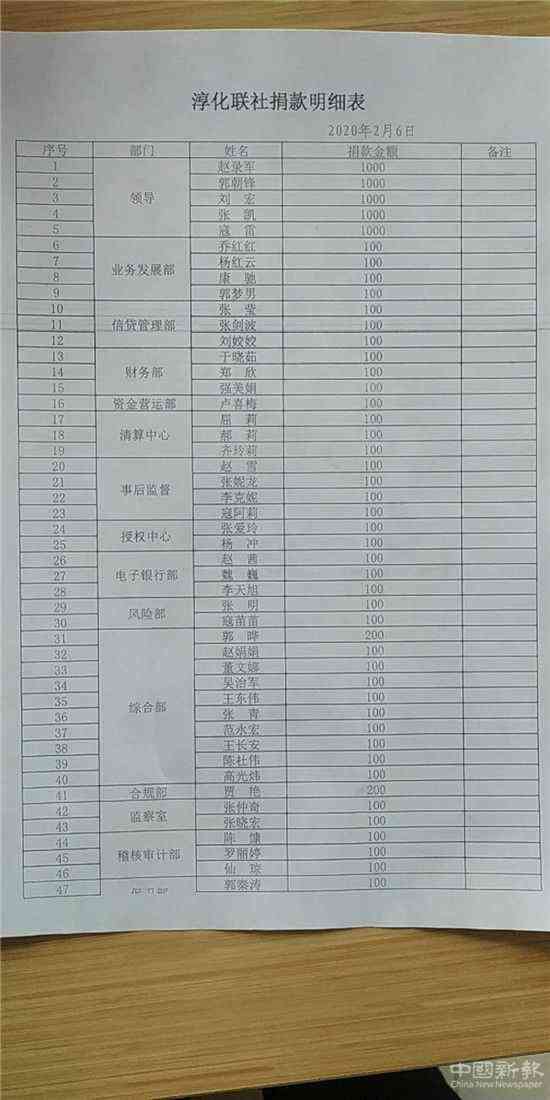 淳化联社捐款明细表
2020年2月6日
序号 部门 姓名 捐款金额 备注
1 领导 赵录军 1000
2 郭朝锋 1000
3 刘 宏 1000
4 张 凯 1000
5 寇 雷 1000
6 业务发展部 乔红红 100
7 杨红云 100
8 康 驰 100
9 郭梦男 100
10 信贷管理部 张 莹 100
11 张剑波 100
12 刘姣姣 100
13 财务部 于晓茹 100
14 郑 欣 100
15 强美娟 100
16 资金营运部 卢喜梅 100
17 清算中心 屈 莉 100
18 郝 莉 100
19 齐玲莉 100
20 事后监督 赵 雪 100
21 张妮龙 100
22 李克妮 100
23 寇阿莉 100
24 授权中心 张爱玲 100
25 杨 冲 100
26 电子银行部 赵 茜 100
27 魏 巍 100
28 李天旭 100
29 风险部 张 明 100
30 寇苗苗 100
31 综合部 郭 晔 200
32 赵娟娟 100
33 董文娜 100
34 吴治军 100
35 王东伟 100
36 张 青 100
37 范永宏 100
38 王长安 100
39 陈杜伟 100
40 高光炜 100
41 合规部 贾 艳 200
42 监察室 张仲奇 100
43 张晓宏 100
44 稽核审计部 陈 慷 100
45 罗丽婷 100
46 仙 琼 100
47 郭秦涛 100
中國新報
China New Newspaper